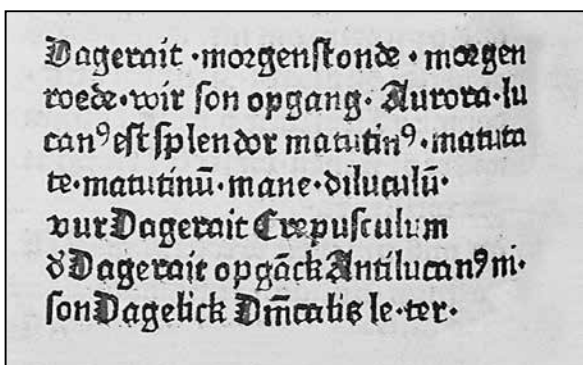 Dagerait ·morgenſtonde · morgen
roede·vvir ſon opgang· Aurora·lu
canꝰ eſt ſplendor matutinꝰ·matuta
te·matutinū·mane·diluculū·
vur Dagerait Crepuſculum
đ Dagerait opgāck Antilucanꝰ ni·
ſon Dagelick Dm̄calis le·ter·